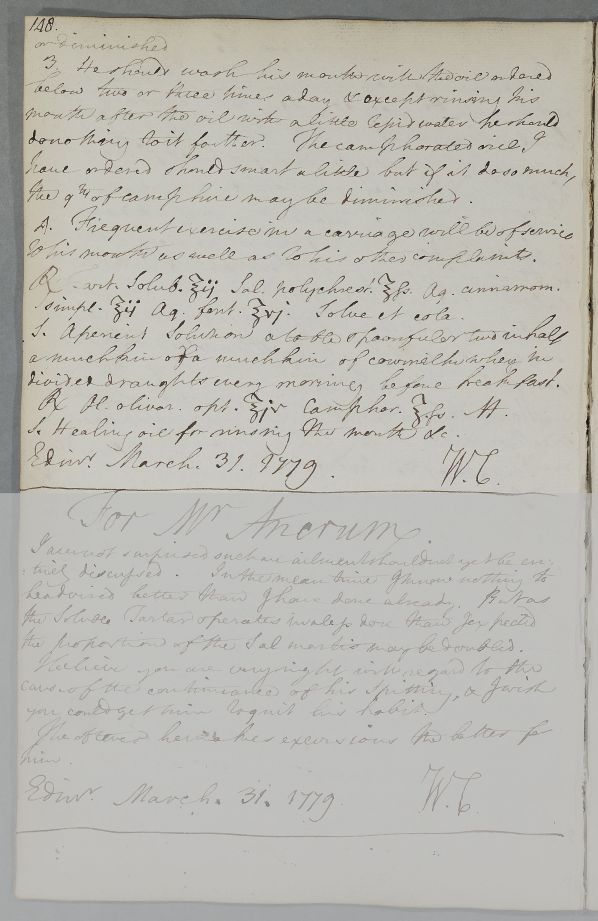 148.
or diminished
3. He should wash his mouth with the oil ordered
below two or three times a day & except rinsing his
mouth after the oil with a little tepid water he should
do nothing to it farther. The camphorated oil I
have ordered should smart a little but if it do so much,
the qty of camphire may be diminished.
4. Frequent exercise in a carriage will be of service
to his mouth as well as to his other complaints.
℞ Tart. Solub. ℥ij Sal. polychrest. ℥fs. Aq. cinnamom.
simpl. ℥ij Aq. font. ℥vj. Solve et cola.
S. Aperient Solution a table spoonful or two in half
a mutchkin or a mutchkin of cowmilk whey in
divided draughts every morning before breakfast.
℞ Ol. olivar. opt. ℥iv Camphor. ℥fs. M.
S. Healing oil for rinsing the mouth &c.
Edinr. March. 31. 1779. W.C.
For Mr Ancrum.
I am not surprised such an ailment should not yet be en-
tirely discussed. In the mean time I know nothing to
be advised better than I have done already. But as
the Soluble Tartar operates rather less than I expected
the proportion of the Sal martis may be doubled.
I believe you are very right with regard to the
cause of the continuance of his spitting, & I wish
you could get him to quit his habit.
The oftener he makes excursions the better for
him.
Edinr. March. 31. 1779. W.C.